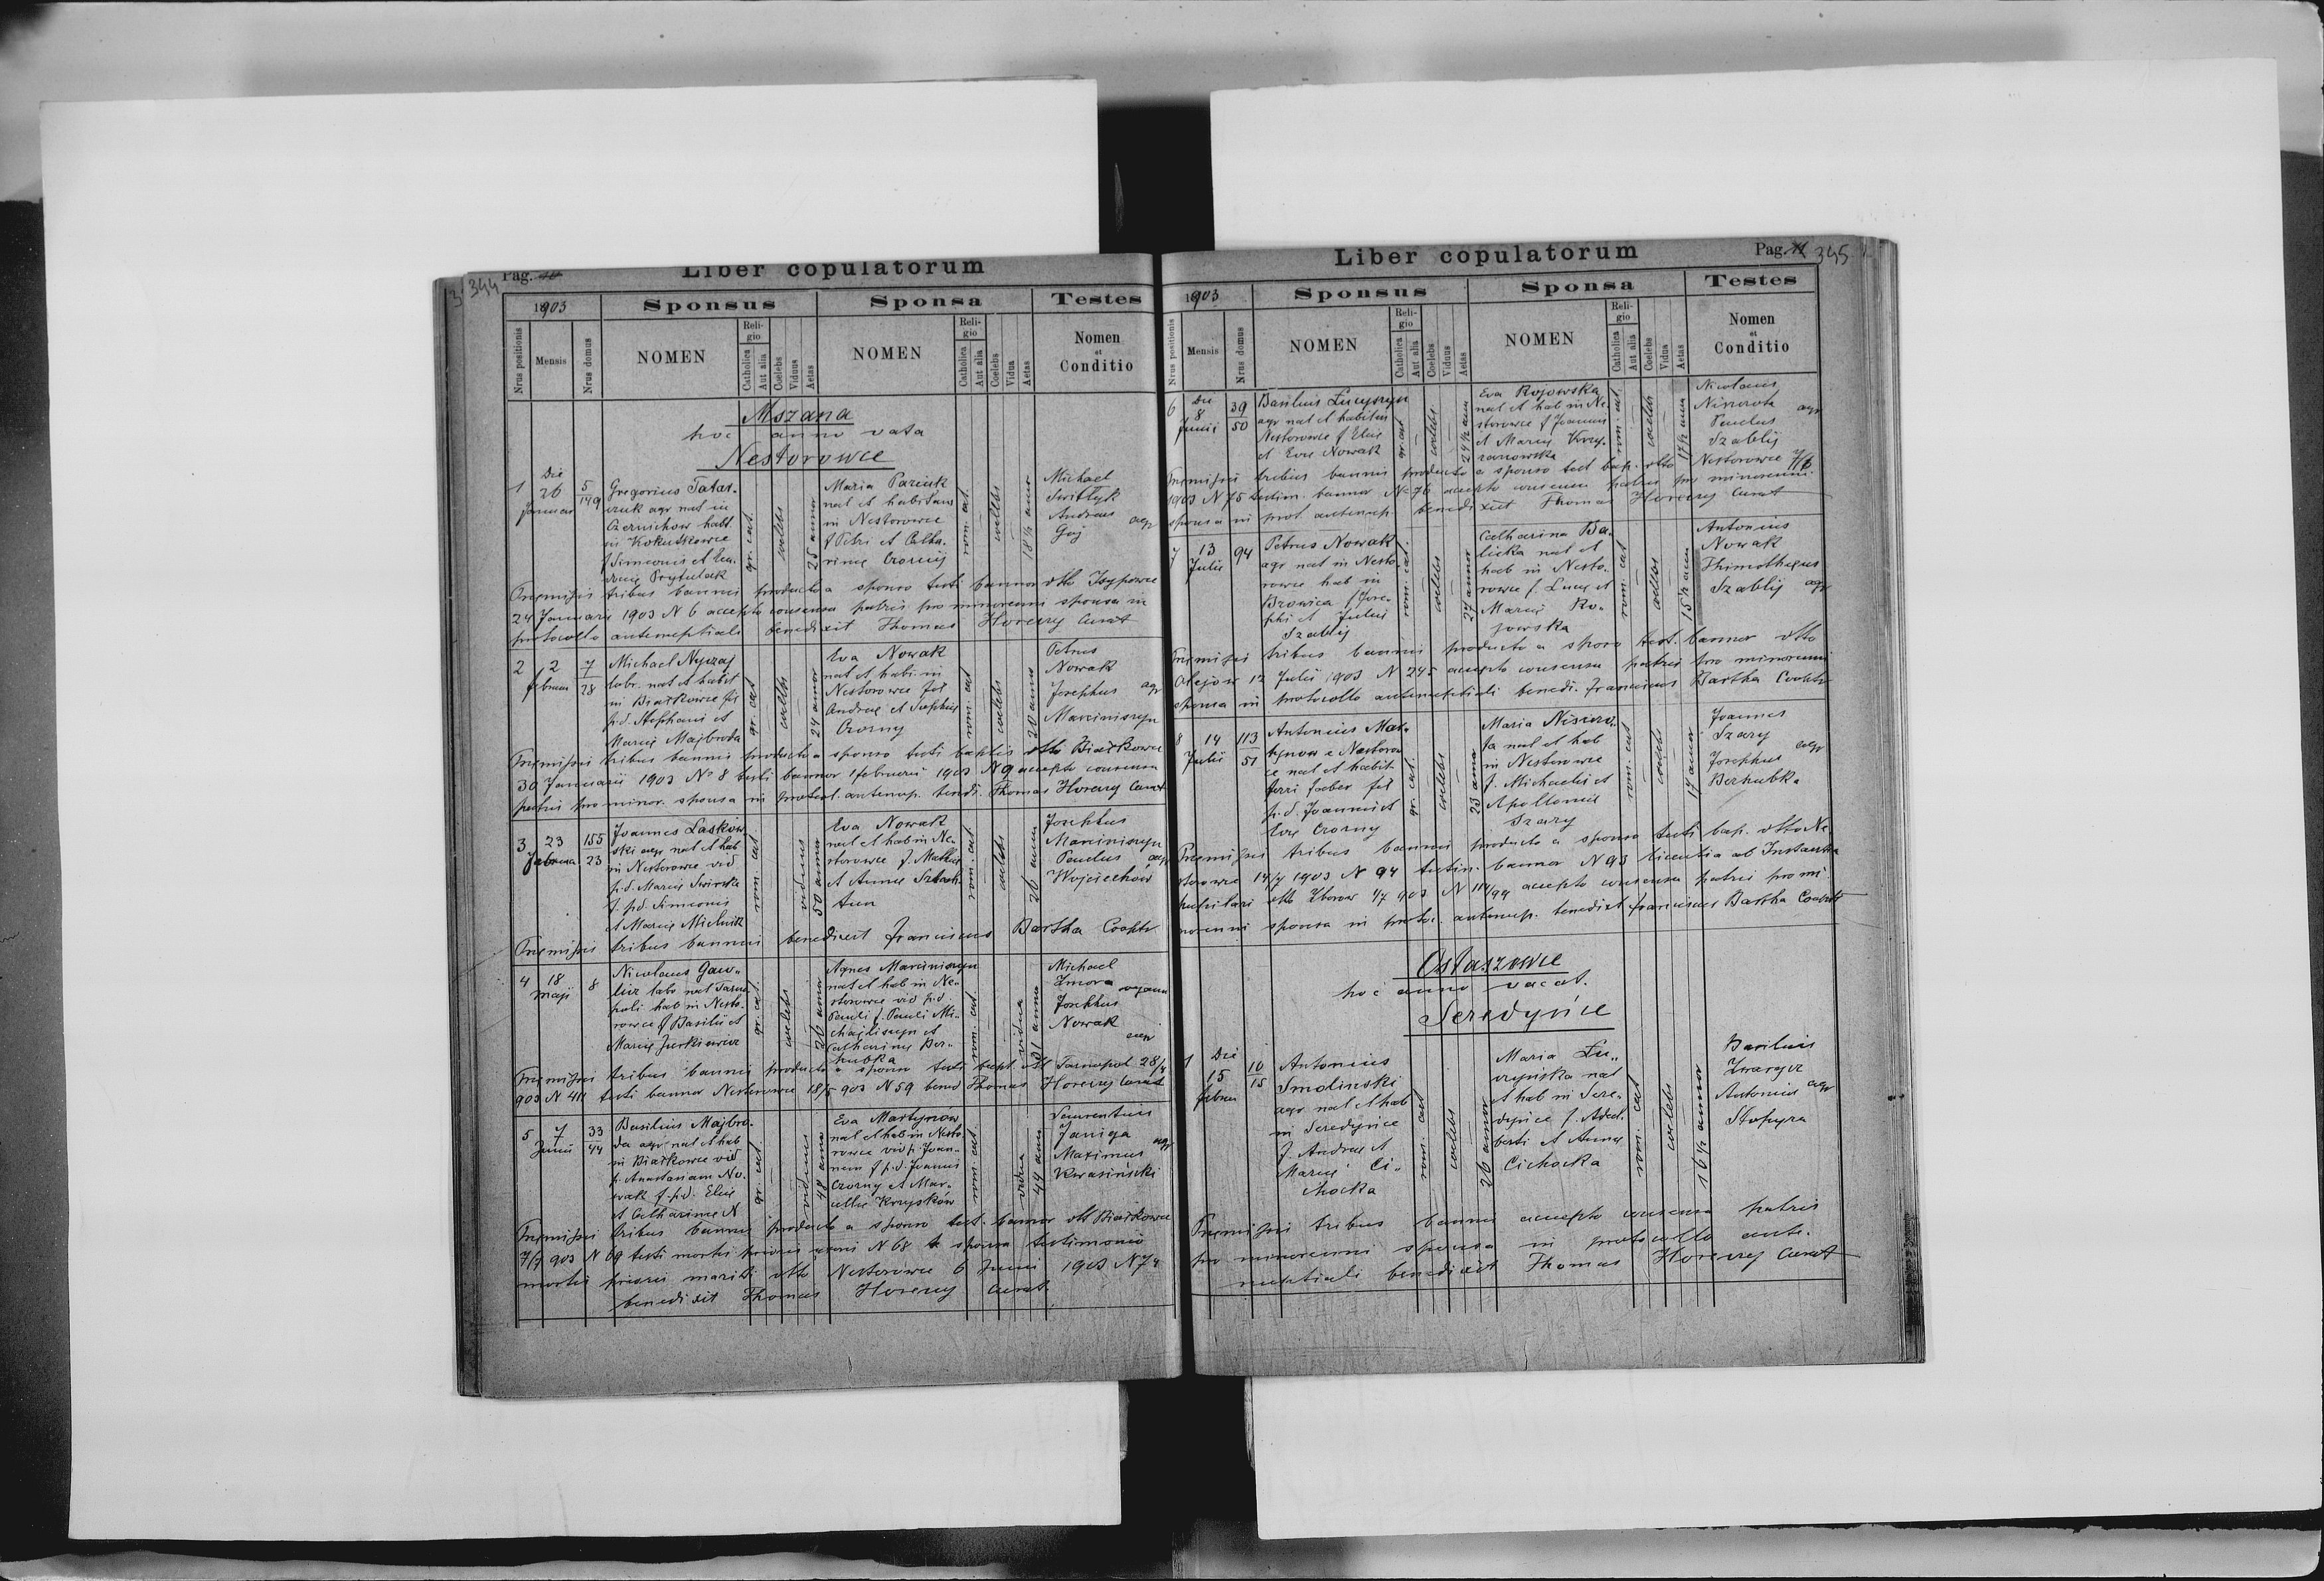 344
Pag. 10
Liber copulatorum
1903
Sponsus
Sponsa
Testes
Nrus positionis
Mensis
Nrus domus
NOMEN
Reli-
gio
Catholica
Aut alia
Coelebs
Viduus
Aetas
NOMEN
Reli-
gio
Catholica
Aut alia
Coelebs
Vidua
Aetas
Nomen
et
Conditio
Mszana
hoc anno vata
Nestorowce
1
Die
26
Januar
5
149
Gregorius Tatar-
czuk agr nat in
Czernichow habt.
in Kokutkowce
f Simeonis et Eu-
Prytulak
gr. cat.
coelebs
25 annor
Maria Parciuk
nat et habitans
in Nestorowce
f Petri et Catha-
rinae Czornij
rom. cat.
coelebs
18½ annor
Michael
Switłyk
Andreas
Gaj
agr
Praemissis tribus bannis producto a sponso testi bannor dtto Isypowce
24 Januarii 1903 N 6 accepto consensu patris pro minorenni sponsa in
protocollo antenuptiali benedixit Thomas Horeczy Curat
2
2
februar
7
28
Michael Nyczaj
labr. nat et habit
in Białkowce fil
p.d. Stephani et
Mariae Majbroda
gr. cat
coelebs
24 annor
Eva Nowak
nat et habi. in
Nestorowce fil
Andreae et Sophiae
Czorny
rom. cat
coelebs
20 annor
Petrus
Nowak
Josephus agr
Marciniszyn
Praemissis tribus bannis producto a sponso testi baptis dtto Białkowce
30 Januarii 1903 No 8 testi bannor 1 februarii 1903 N 9 accepto consensu
patris pro minor. sponsa in protocol. antenup. bened. Thomas Horeczy Curat
3
23
februar
155
23
Joannes Laskow-
ski agr nat et hab
in Nestorowce vid
p.d. Mariae Swirska
f. pd. Simeonis
et Mariae Mielnik
rom. cat.
viduus
50 annor
Eva Nowak
nat et hab in Ne-
storowce f. Mathiae
et Annae Sztach-
rom. cat
coelebs
26 annor
Josephus
Marciniszyn
Paulus agr
Wojciechów
Praemissis tribus bannis benedixit Franciscus Bartha Cooptr
4
18
Maji
8
Nicolaus Gaw-
labr nat Tarno-
poli hab in Nesto-
rowce f Basilii et
Mariae Jurkiewicz
gr. cat.
coelebs
26 annor
Agnes Marciniszyn
nat et hab in Ne-
storowce vid p.d.
Pauli f. Pauli Mi-
chajliszyn et
Catharinae Ber-
hubka
rom. cat.
vidua
31 annor
Michael
Zmora
Josephus
Nowak
agr
Praemissis tribus bannis producto a sponso testi bapt dtt Tarnopol 28/4
903 N 411 testi bannor Nestorowce 18/5 903 N 59 bened Thomas Horeczy Curat
5
7
Junii
33
44
Basilius Majbro-
da agr nat et hab
in Białkowce vid
p. Anastasiam No-
wak f. p.d. Eliae
et Catharinae N
gr. cat.
viduus
48 annor
Eva Martynów
nat et hab in Nesto
rowce vid p. Joan-
nem f p.d. Joannis
Czorny et Mar-
cellae Krzysków
rom. cat.
vidua
49 annor
Laurentius
Janiga agr
Maximus
Kwasiniski
Praemissis tribus bannis producto a sponso test. bannor dtt Białkowce
7/7 903 N 69 testi mortis prioris uxoris N 68 a sponsa testimonio
mortis prioris mariti dtto Nestorowce 6 Junii 1903 N 74
benedixit Thomas Horeczy Curat
Liber copulatorum
Pag. 11
345
1903
Sponsus
Sponsa
Testes
Nrus positionis
Mensis
Nrus domus
NOMEN
Reli-
gio
Catholica
Aut alia
Coelebs
Viduus
Aetas
NOMEN
Reli-
gio
Catholica
Aut alia
Coelebs
Vidua
Aetas
Nomen
et
Conditio
6
Die
8
Junii
39
50
Basilius Lucyszyn
agr nat et habitus
Nestorowce f Eliae
et Evae Nowak
gr. cat
coelebs
24½ ann
Eva Rojowska
nat et hab in Ne-
storowce f Joannis
et Mariae Krzy-
zanowska
rom. cat.
coelebs
17½ ann
Nicolaus
Niszczota agr
Paulus
Szablij
Praemissis tribus bannis producto a sponso test bap. dtto Nestorowce 7/6
1903 N 75 testim. bannor No 76 accepto consensu patris pro minorenni
sponsa in prot. antenup. benedixit Thomas Horeczy Curat
7
13
Julii
94
Petrus Nowak
agr nat in Nesto
rowce hab in
Browica f Jose-
phi et Juliae
Szablij
rom. cat.
coelebs
27 annor
Catharina Ba-
licka nat et
hab in Nesto-
rowce f. Lucae et
Mariae Ro-
jowska
rom. cat
coelebs
15½ ann
Antonius
Nowak
Thimotheus
Szablij agr
Praemissis tribus bannis producto a sponso test. bannor dtto
Olejów 12 Julii 1903 N 245 accepto consensu patris pro minorenni
sponsa in protocollo antenuptiali benedi. Franciscus Bartha Cooptr
8
14
Julii
113
51
Antonius Mar-
tynow e Nestorow
ce nat et habit
ferri faber fil
p.d. Joannis et
Evae Czorny
gr. cat.
coelebs
23 anno
Maria Niszczo-
ta nat et hab
in Nestorowce
f. Michaelis et
Apolloniae
Szary
rom. cat
coelebs
17 annor
Joannes
Szary
Josephus agr
Berhubka
Praemissis tribus bannis producto a sponso testi bap. dtto Ne
storowce 14/7 1903 N 94 testim. bannor N 93 licentia ab Instantia
pupilari dtto Zborow 4/7 903 N 114/99 accepto consensu patris pro mi-
norenni sponsa in protoc. antenup. benedixt Franciscus Bartha Cooptr
Ostaszowce
hoc anno vacat.
Seredyńce
1
Die
15
februar
10
15
Antonius
Smolinski
agr nat et hab
in Seredynce
f. Andreae et
Mariae Ci-
chocka
rom. cat
coelebs
26 annor
Maria Lu-
czynska nat
et hab in Sere-
dynce f. Adal-
berti et Annae
Cichocka
rom. cat
coelebs
16½ annor
Basilius
Zwarycz
Antonius agr
Stopyra
Praemissis tribus bannis accepto consensu patris
pro minorenni sponsa in protocollo ante-
nuptiali benedixit Thomas Horeczy Curat